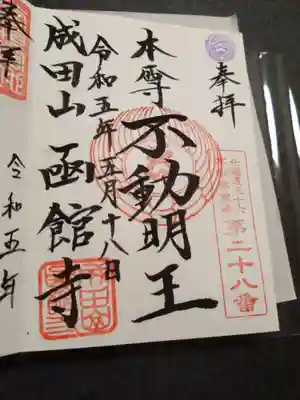 奉拝
第二十八番
本尊
不動明王
令和五年五月十八日
成田山 函館寺
奉拝
令和五年